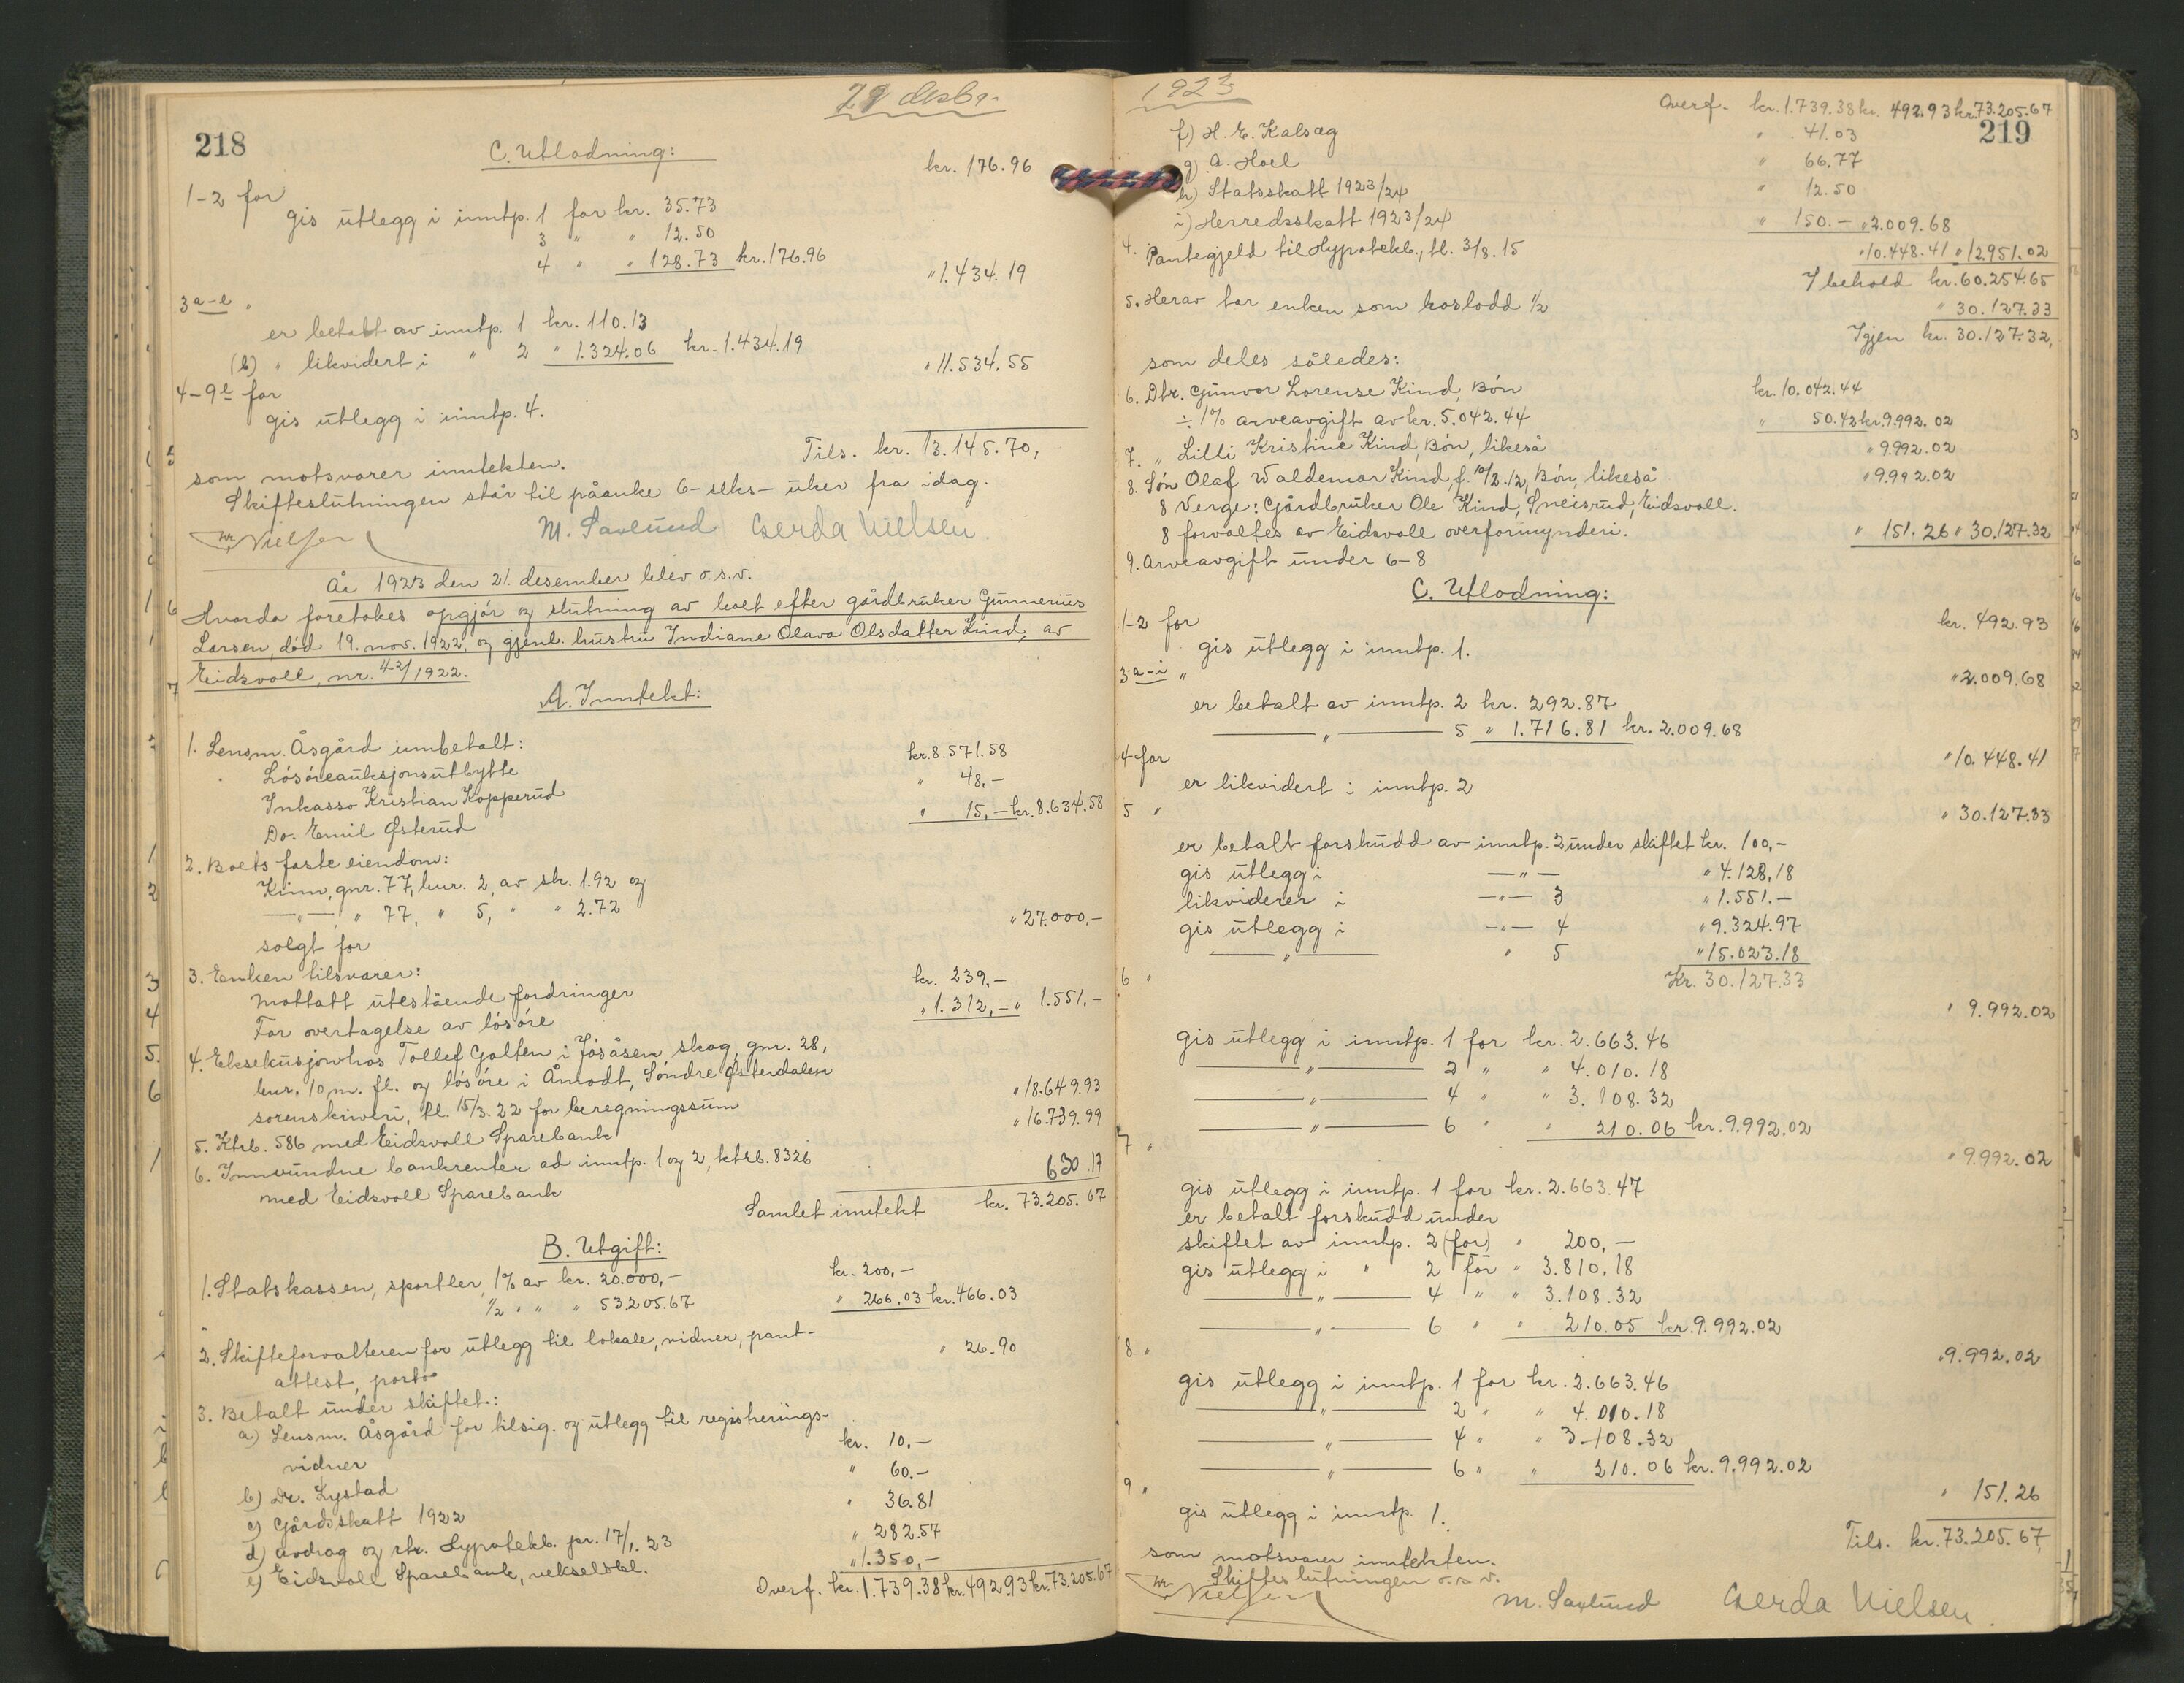 21 desbr.
218
C. Utlodning:
1-2 for kr. 176.96
gis utlegg i inntp. 1 for kr. 35.73
3 " " 12.50
4 " " 128.73 kr. 176.96
3 a-e " " 1.434.19
er betalt av inntp. 1 kr. 110.13
(b) " likvidert i " 2 " 1.324.06 kr. 1.434.19
4-9e for " 11.534.55
gis utlegg i inntp. 4.
Tils. kr. 13.145.70,
som motsvarer inntekten.
Skifteslutningen står til påanke 6-seks- uker fra idag.
Nielsen M. Saxlund Gerda Nielsen.
År 1923 den 21. desember blev o.s.v.
Hvorda foretokes opgjør og slutning av boet efter gårdbruker Gunnerius
Larsen, död 19. nov. 1922, og gjenl. hustru Indiane Olava Olsdatter Kind, av
Eidsvoll, nr. 42/1922.
A. Inntekt:
1. Lensm. Åsgård innbetalt:
Lösöreauksjonsutbytte kr. 8.571.58
Inkasso Kristian Kopperud " 48,-
Do. Emil Østerud " 15,- kr. 8.634.58
2. Boets faste eiendom:
Kinn, gnr. 77, bnr. 2, av sk. 1.92 og
—"— " 77, " 5, " " 2.72
solgt for " 27.000,-
3. Enken tilsvarer:
Mottatt utestående fordringer kr. 239,-
For overtagelse av lösöre " 1.312,- " 1.551,-
4. Eksekusjon hos Tollef Galten i Jösåsen skog, gnr. 28,
bnr. 10 m. fl. og lösöre i Åmodt, Söndre Østerdalen
sorenskriveri, tl. 15/3. 22 for beregningssum " 18.649.93
5. Ktrb. 586 med Eidsvoll Sparebank " 16.739.99
6. Innvundne bankrenter ad inntp. 1 og 2, ktrb. 8326
med Eidsvoll Sparebank 630.17
Samlet inntekt kr. 73.205.67
B. Utgift:
1. Statskassen, sportler, 1% av kr. 20.000,- kr. 200,-
1/2 " " " 53205.67 " 266.03 kr. 466.03
2. Skifteforvalteren for utlegg til lokale, vidner, pant-
attest, porto " 26.90
3. Betalt under skiftet:
a) Lensm. Åsgård for tilsig. og utlegg til registrerings-
vidner kr. 10.-
b) Dr. Lystad " 60.-
c) Gårdsskatt 1922 " 36.81
d) avdrag og rtr. Hypotekb. pr. 17/1. 23 " 282.57
e) Eidsvoll Sparebank, vekselobl. " 1.350,-
Overf. kr. 1.739.38 kr. 492.93 kr. 73.205.67
1923
219
Overf. kr. 1.739.38 kr. 492.93 kr. 73.205.67
f) H. E. Kalsæg " 41.03
g) A. Hoel " 66.77
h) Statsskatt 1923/24 " 12.50
i) Herredsskatt 1923/24 " 150.- " 2.009.68
4. Pantegjeld til Hypotekb., tl. 3/8. 15 " 10.448.41 " 12.951.02
I behold kr. 60.254.65
5. Herav tar enken som boslodd 1/2 " 30.127.33
Igjen kr. 30.127.32,
som deles således:
6. Dtr. Gunvor Lorense Kind, Bön kr. 10.042.44
÷ 1% arveavgift av kr. 5.042.44 " 50.42 kr. 9.992.02
7. " Lilli Kristine Kind, Bön, likeså " 9.992.02
8. Sön Olaf Waldemar Kind, f. 10/2.12, Bön, likeså " 9.992.02
8 Verge: Gårdbruker Ole Kind, Sneisrud, Eidsvoll.
8 forvaltes av Eidsvoll overformynderi.
9. Arveavgift under 6-8 " 151.26 " 30.127.32
C. Utlodning:
1-2 for kr. 492.93
gis utlegg i inntp. 1.
3 a-i " " 2.009.68
er betalt av inntp. 2 kr. 292.87
—"— 5 " 1.716.81 kr. 2.009.68
4 for " 10.448.41
er likvidert i inntp. 2
5 " " 30.127.33
er betalt forskudd av inntp. 2 under skiftet kr. 100,-
gis utlegg i —"— " 4.128,18
likviderer i —"— 3 " 1.551.-
gis utlegg i —"— 4 " 9.324.97
—"— " 5 " 15.023.18
Kr. 30.127.33
6 " " 9.992.02
gis utlegg i inntp. 1 for kr. 2.663.46
—"— 2 " " 4.010.18
—"— 4 " " 3.108.32
—"— 6 " " 210.06 kr. 9.992.02
7 " " 9.992.02
gis utlegg i inntp. 1 for kr. 2.663.47
er betalt forskudd under
skiftet av inntp. 2 (for) " 200,-
gis utlegg i " 2 for " 3.810.18
—"— 4 " " 3.108.32
—"— 6 " " 210.05 kr. 9.992.02
8 " " 9.992.02
gis utlegg i inntp. 1 for kr. 2.663.46
—"— 2 " " 4.010.18
—"— 4 " " 3.108.32
—"— 6 " " 210.06 kr. 9.992.02
9 " " 151.26
gis utlegg i inntp. 1.
Tils. kr. 73.205.67,
som motsvarer inntekten.
Skifteslutningen o.s.v.
Nielsen M. Saxlund Gerda Nielsen.